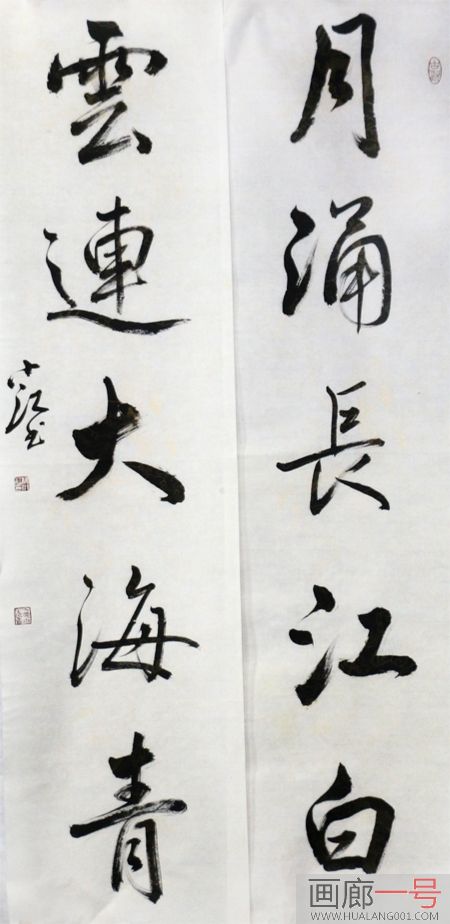 月涌長江白
雲連大海青
画廊一号
WWW.HUALANG001.COM